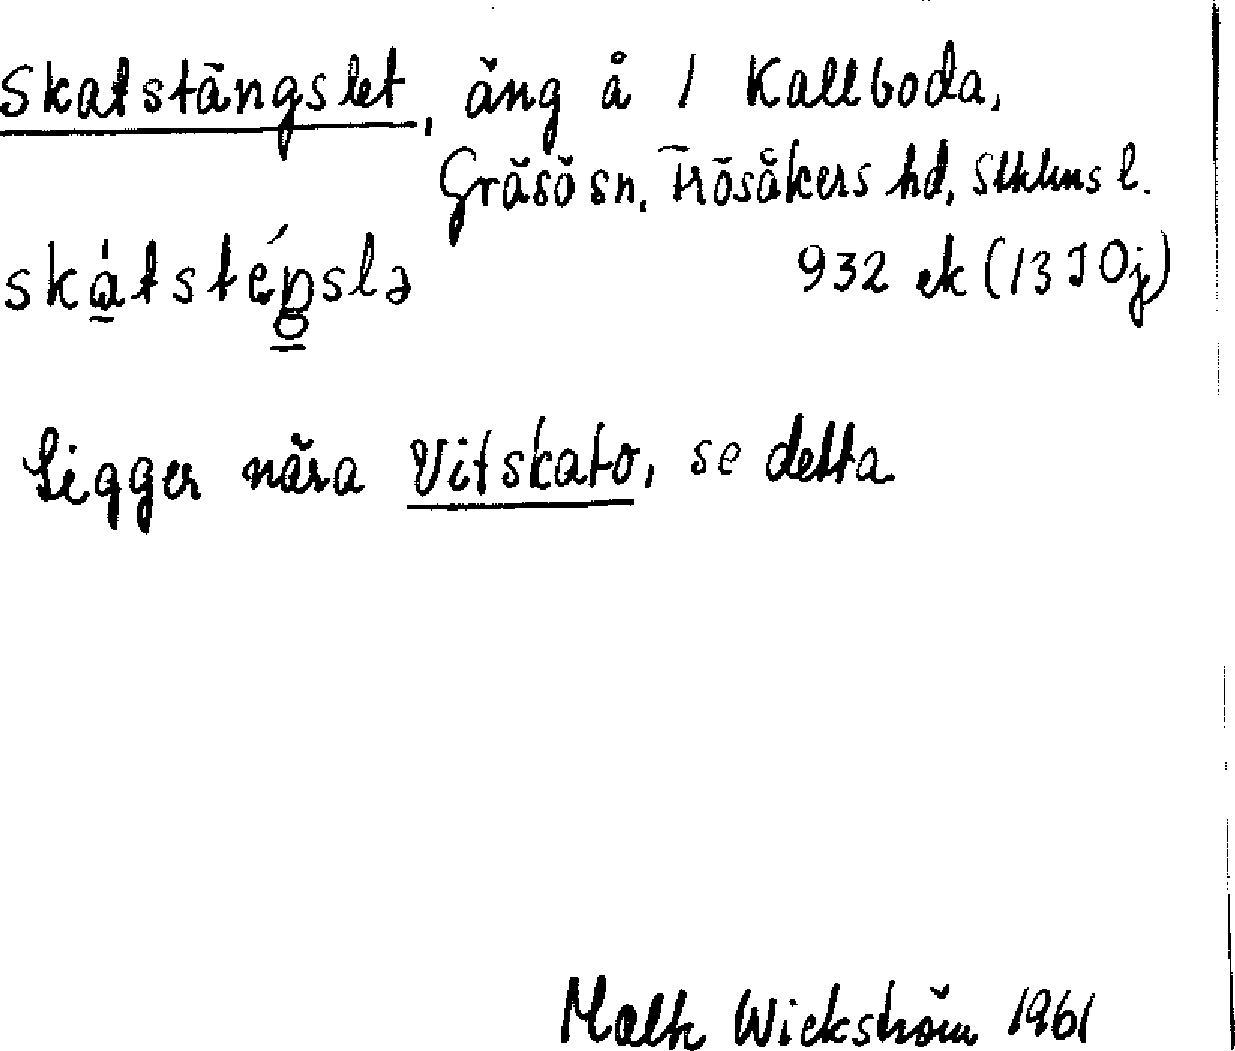 Skatstängslet, äng å 1 Kallboda,
Gräsö sn, Frösåkers hd, Sthlms l.
skatsteŋslə 932 ek (13I0j)
Ligger nära Vitskato, se detta
Wickström 1961